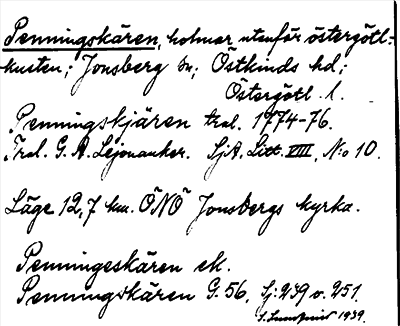 Penningskären, holmar utanför östergötl.-
kusten; Jonsberg sn; Östkinds hd;
Östergötl. l.
Penningskjären tral. 1774-76.
Tral. G. A. Lejonanker. SjA. Litt. VIII, N:o 10.
Läge 12,7 km. ÖNÖ Jonsbergs kyrka.
Penningeskären ek.
Penningskären G. 56, Sj: 239 o. 251.
1939.